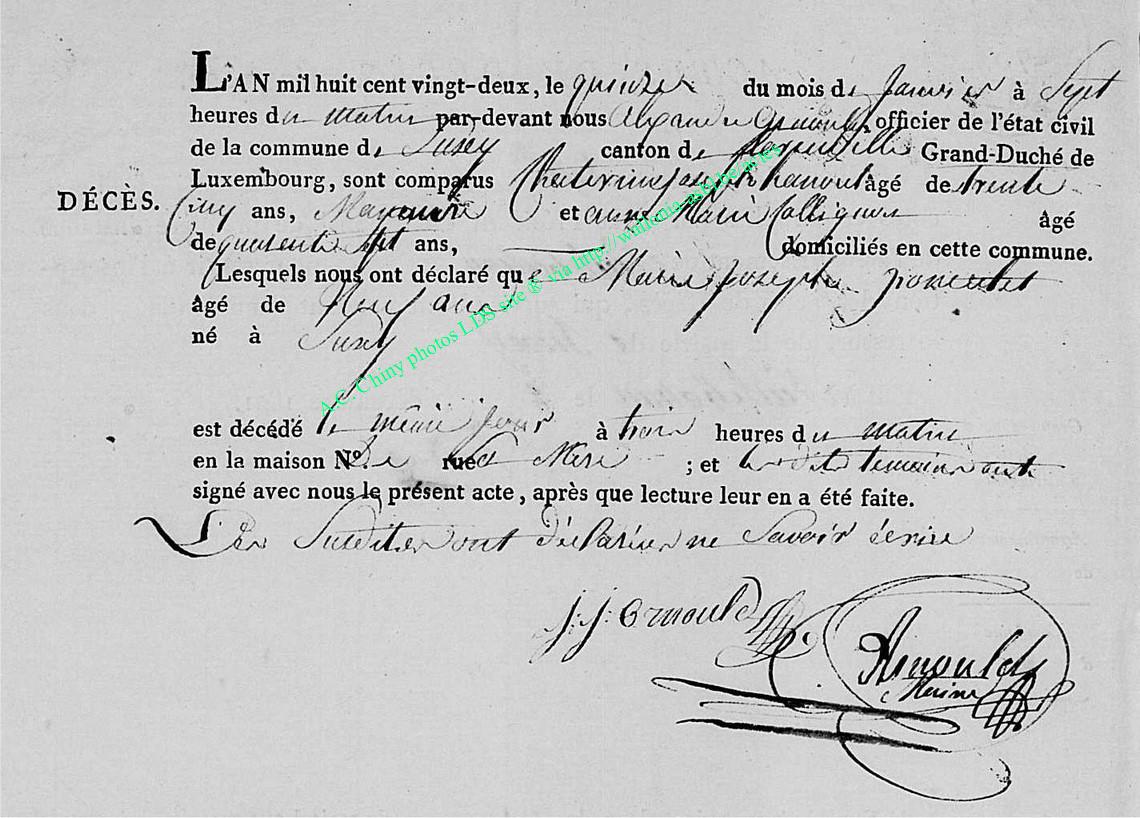 L'AN mil huit cent vingt-deux, le quinze du mois de Janvier à Sept
heures du matin par-devant nous Alexandre Arnould, officier de l'état civil
de la commune de Suxy canton de Grand-Duché de
Luxembourg, sont comparus âgé de trente
DÉCÈS.
Cinq ans, et anne Marie Collignon âgé
de quarente sept ans, domiciliés en cette commune.
Lesquels nous ont déclaré que Marie Joseph
âgé de Neuf ans
né à Suxy
est décédé le même jour à trois heures du matin
en la maison Nº. De rue Sa Mere ; et les dits temoins ont
signé avec nous le présent acte, après que lecture leur en a été faite.
Les Susdites ont déclarées ne Savoir écrire
J: J: Arnould
Arnould
A.C. Chiny photos LDS site ® via http://wallonia-asbl.be/aries